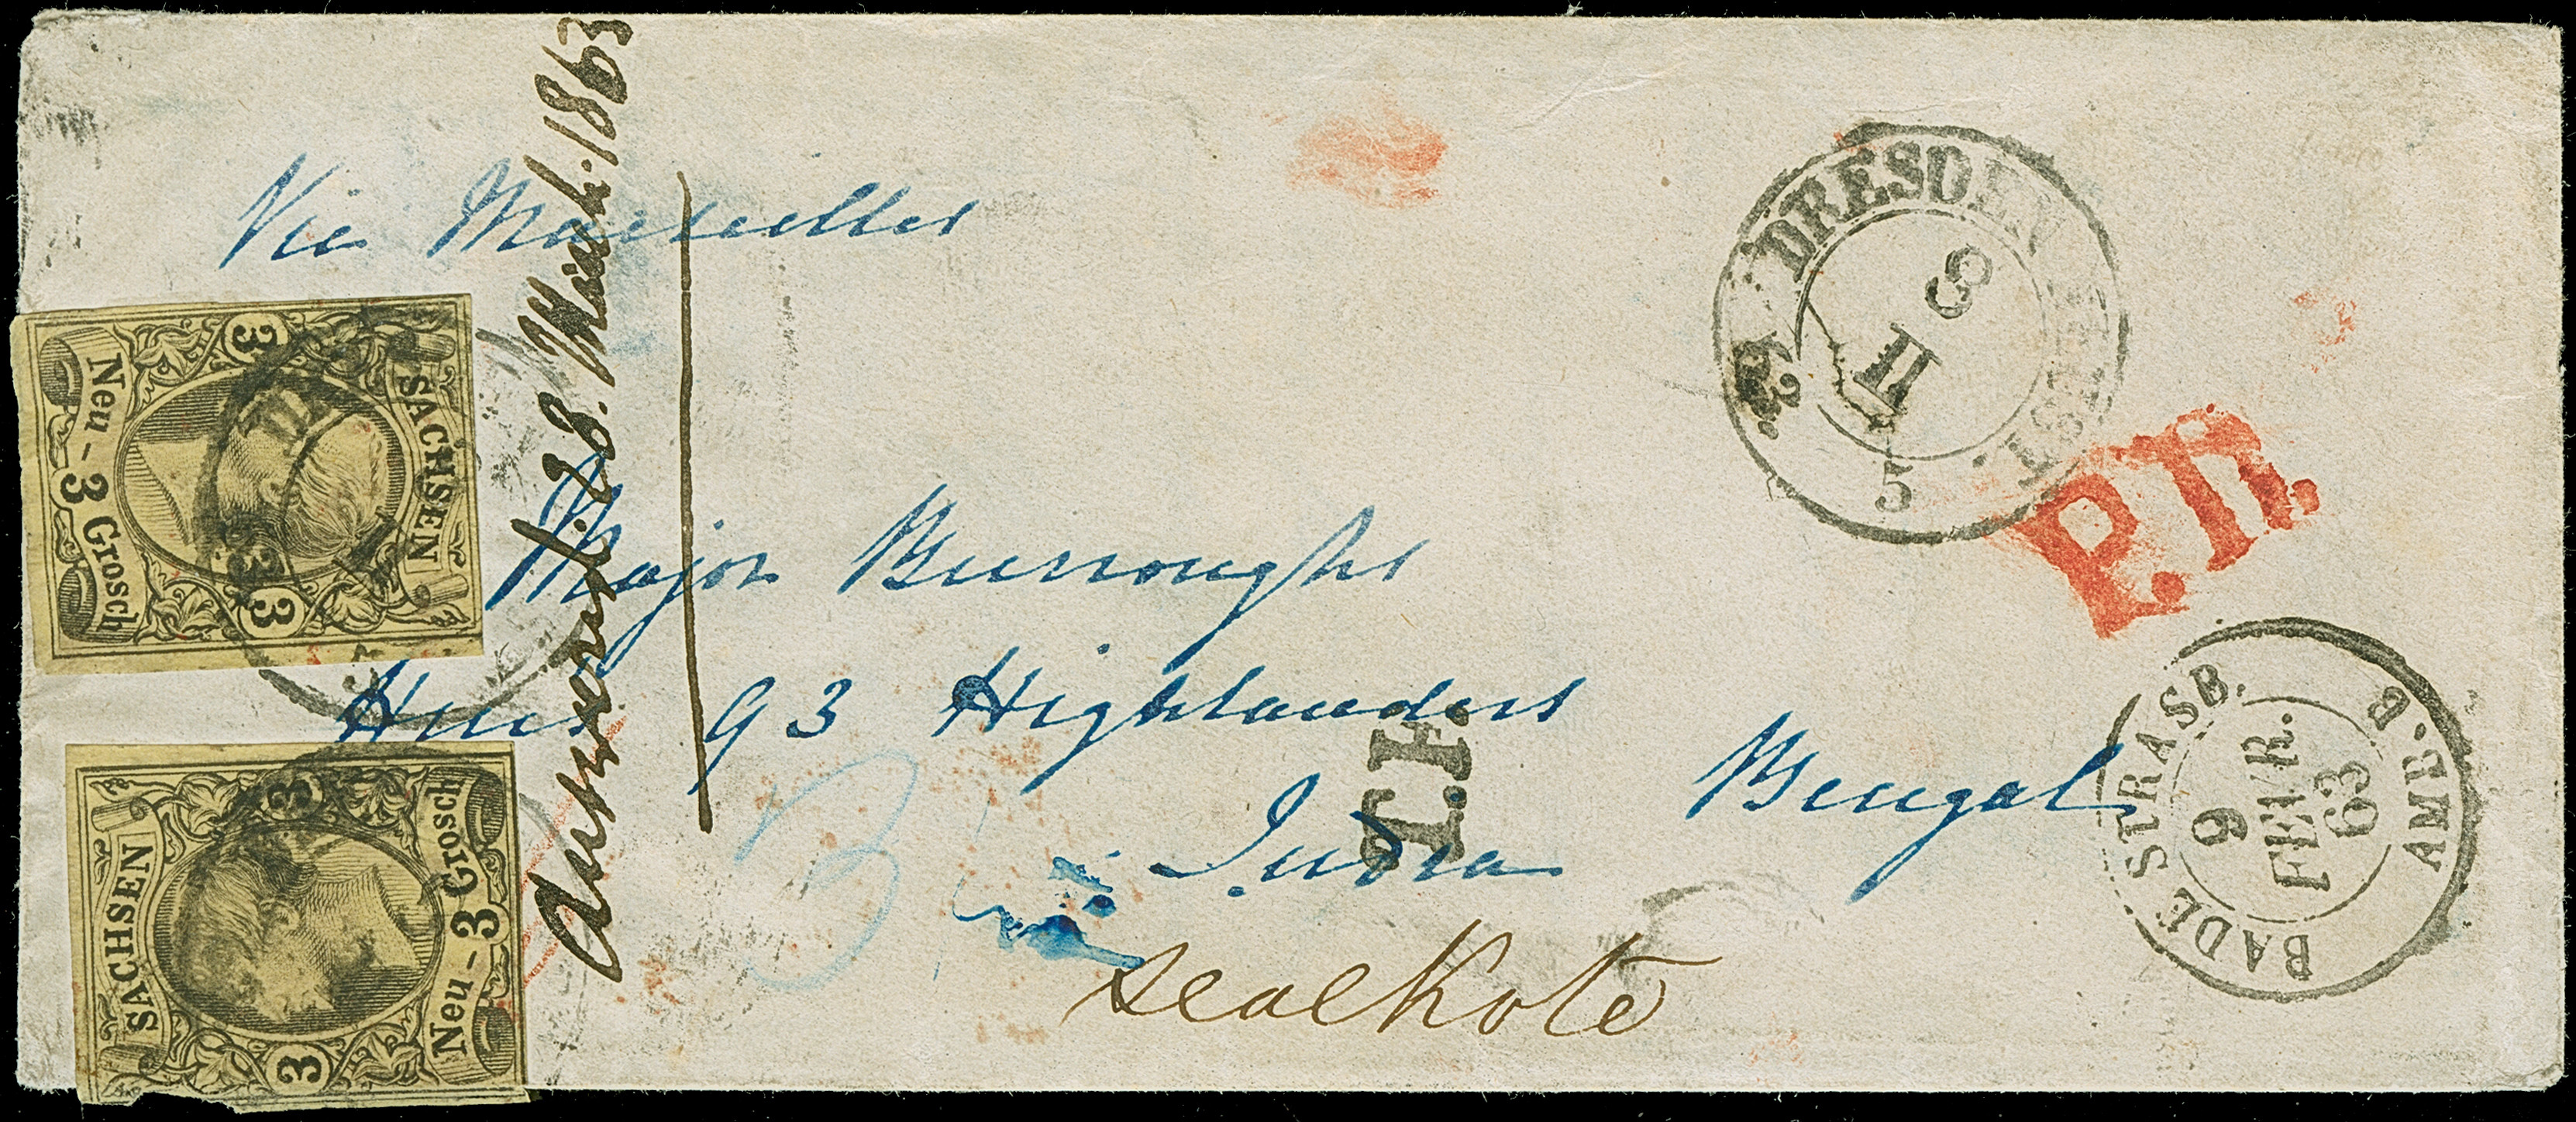 Via Marseilles
Answered. 28. March. 1863
Major Burroughs
93 Highlanders
Bengal
India
Sealkote
DRESDEN
8
II
63
5
P.D.
BADE STRASB. AMB. B
9
FEVR.
63
3
SACHSEN
Neu-3 Grosch
3
3
SACHSEN
Neu-3 Grosch
3